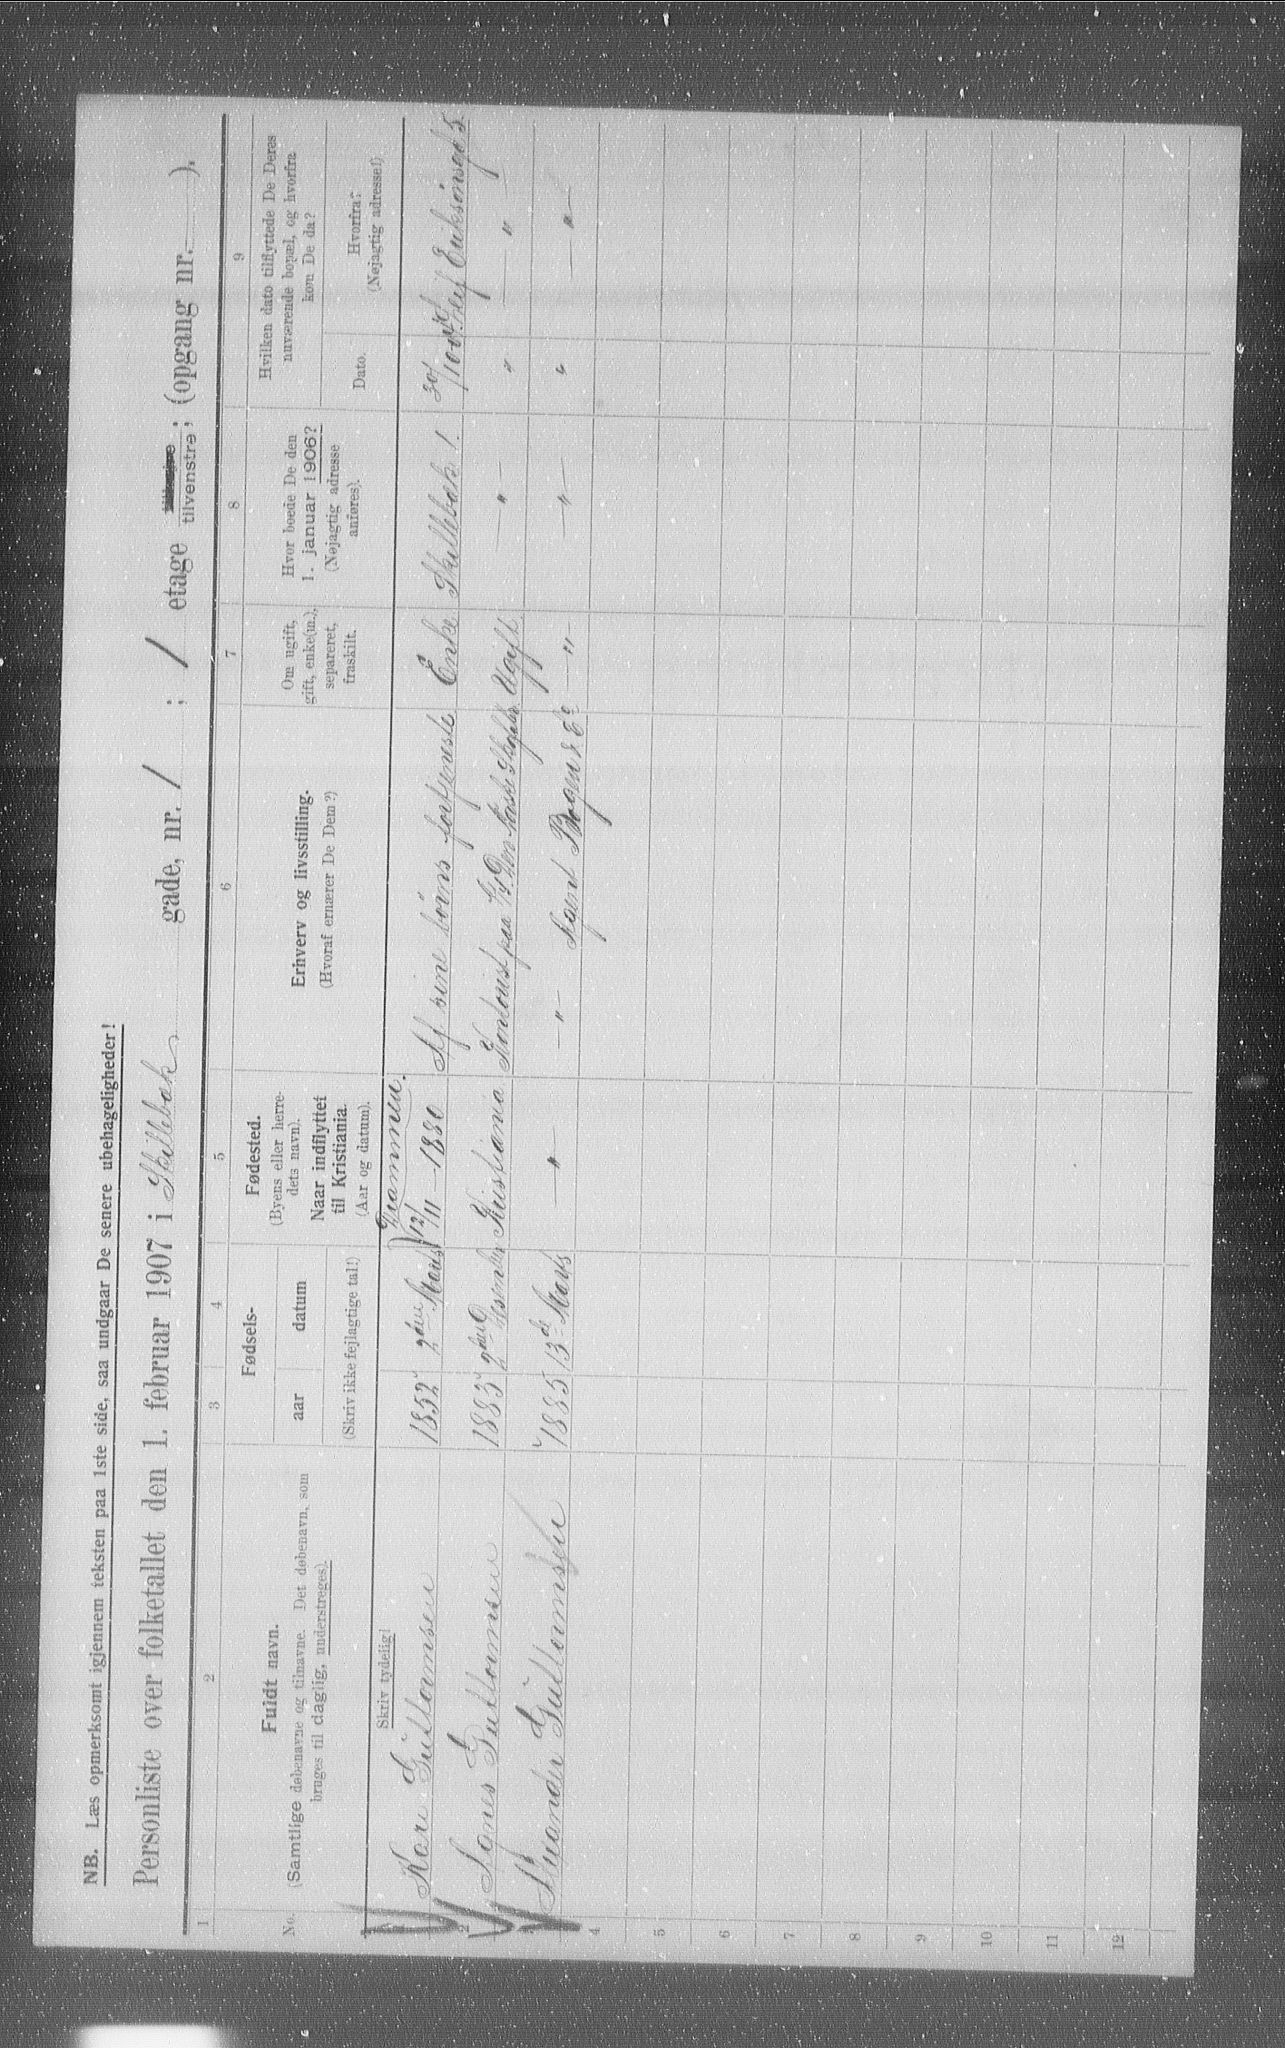 NB. Læs opmerksomt igjennem teksten paa 1ste side, saa undgaar De senere ubehageligheder!
Personliste over folketallet den 1. februar 1907 i Skillebæk gade, nr. 1 ; 1 etage tilvenstre; (opgang nr. ).
1 2 3 4 5 6 7 8 9
No.
Fuldt navn.
(Samtlige døbenavne og tilnavne. Det døbenavn, som
bruges til daglig, understreges).
Skriv tydelig!
Fødsels-
aar datum
(Skriv ikke fejlagtige tal!)
Fødested.
(Byens eller herre-
dets navn).
Naar indflyttet
til Kristiania.
(Aar og datum).
Erhverv og livsstilling.
(Hvoraf ernærer De Dem?)
Om ugift,
gift, enke(m.),
separeret,
fraskilt.
Hvor boede De den
1. januar 1906?
(Nøjagtig adresse
anføres).
Hvilken dato tilflyttede De Deres
nuværende bopæl, og hvorfra
kom De da?
Dato.
Hvorfra?
(Nøjagtig adresse!)
Drammen.
Kari Guttormsen 1852 2den Marts 12/11 - 1880 Af sine børns fortjeneste Enke Skillebæk 1. 30/10 Leif Eriksønsgd 5
2 Agnes Guttormsen 1883 2den Desember Kristiania Kontorist paa Ugift — " — " — " —
3 Guttormsen 1885 13de Marts — " — — " — Agent — " — — " — " — " —
4
5
6
7
8
9
10
11
12